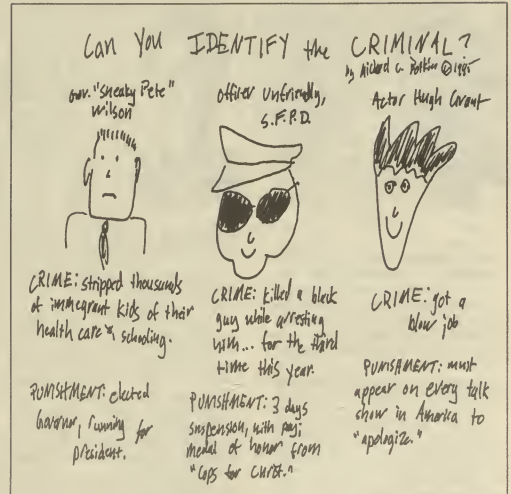 Can You IDENTIFY the CRIMINAL?
by Richard C. ©1995
Gov. "Sneaky Pete"
Wilson
Officer Unfriendly,
S.F.P.D.
Actor Hugh Grant
CRIME: stripped thousands
of immegrant kids of their
health care & schooling.
PUNISHMENT: elected
Governor, running for
president.
CRIME: killed a black
guy while arresting
him... for the third
time this year.
PUNISHMENT: 3 days
suspension, with pay;
medal of honor from
"Cops for Christ."
CRIME: got a
blow job
PUNISHMENT: must
appear on every talk
show in America to
"apologize."